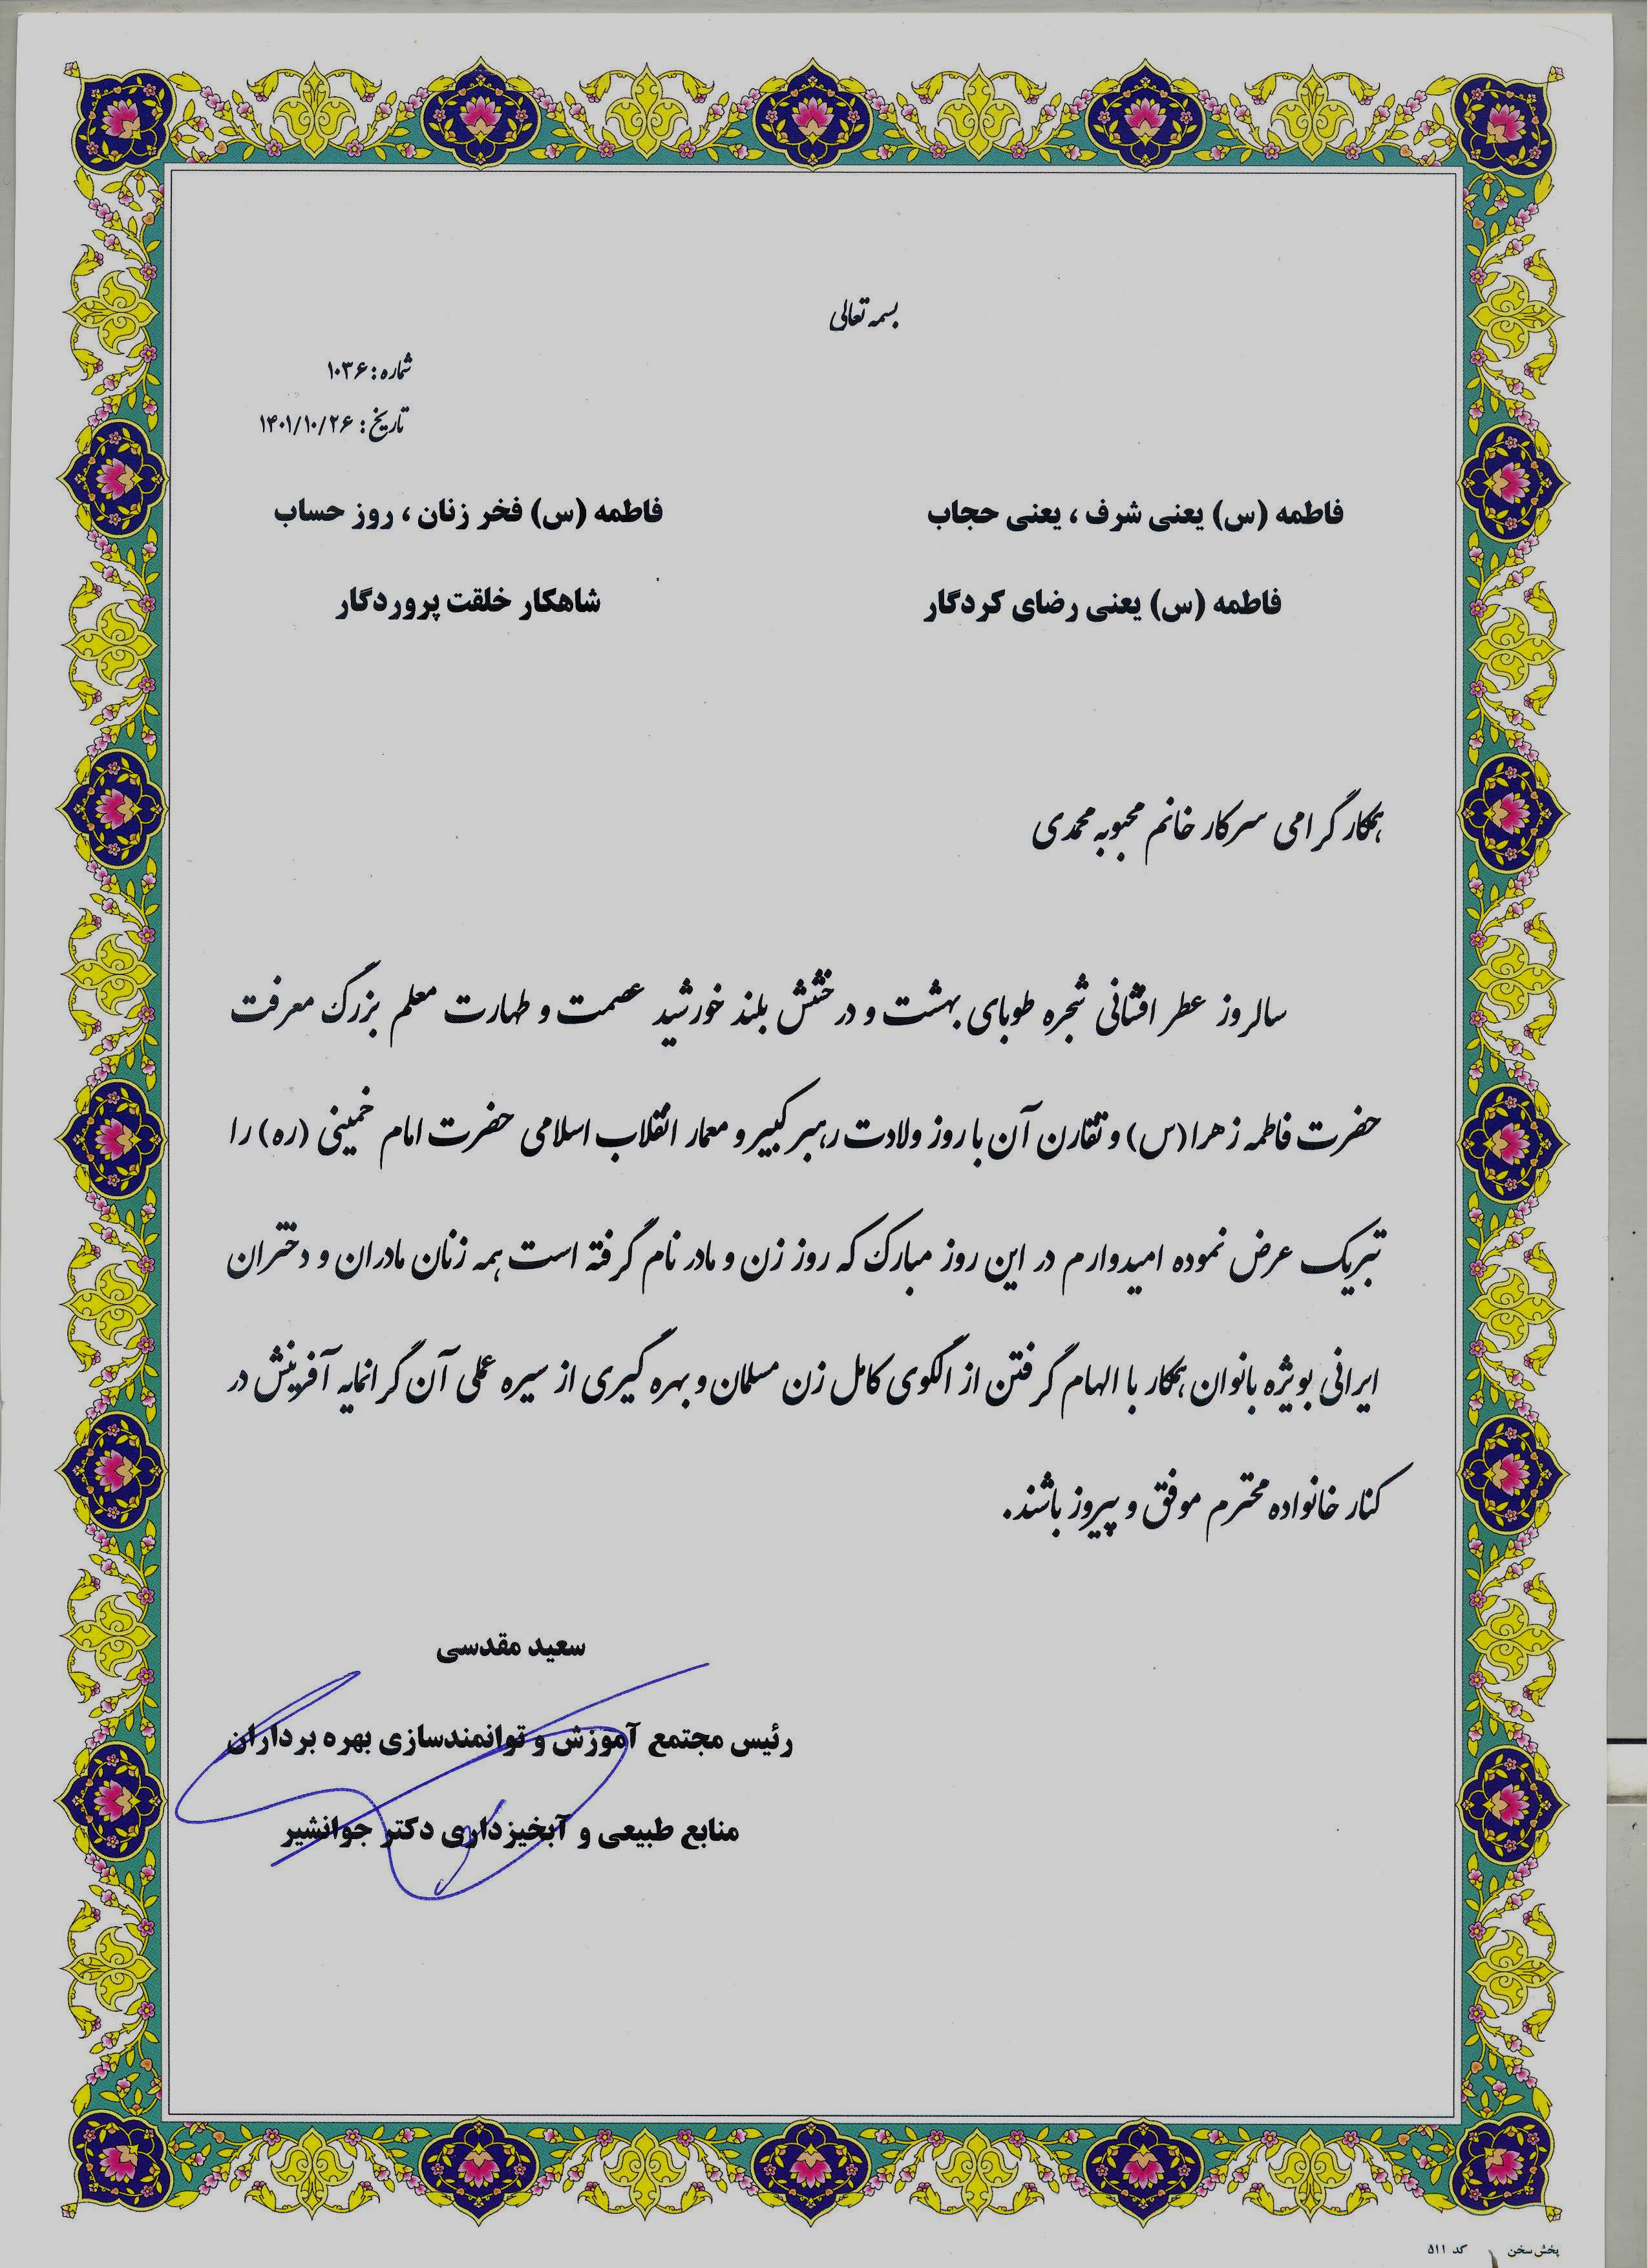 بسمه تعالی
شماره: ۱۰۳۶
تاریخ: ۱۴۰۱/۱۰/۲۶
فاطمه (س) یعنی شرف ، یعنی حجاب فاطمه (س) فخر زنان ، روز حساب
فاطمه (س) یعنی رضای کردگار شاهکار خلقت پروردگار
همکار گرامی سرکار خانم محبوبه محمدی
سالروز عطر افشانی شجره طوبای بهشت و درخشش بلند خورشید عصمت و طهارت معلم بزرگ معرفت
حضرت فاطمه زهرا(س) و تقارن آن با روز ولادت رهبر کبیر و معمار انقلاب اسلامی حضرت امام خمینی (ره) را
تبریک عرض نموده امیدوارم در این روز مبارک که روز زن و مادر نام گرفته است همه زنان مادران و دختران
ایرانی بویژه بانوان همکار با الهام گرفتن از الگوی کامل زن مسلمان و بهره گیری از سیره عملی آن گرانمایه آفرینش در
کنار خانواده محترم موفق و پیروز باشند.
سعید مقدسی
رئیس مجتمع آموزش و توانمندسازی بهره برداران
منابع طبیعی و آبخیزداری دکتر جوانشیر
پخش سخن کد ۵۱۱